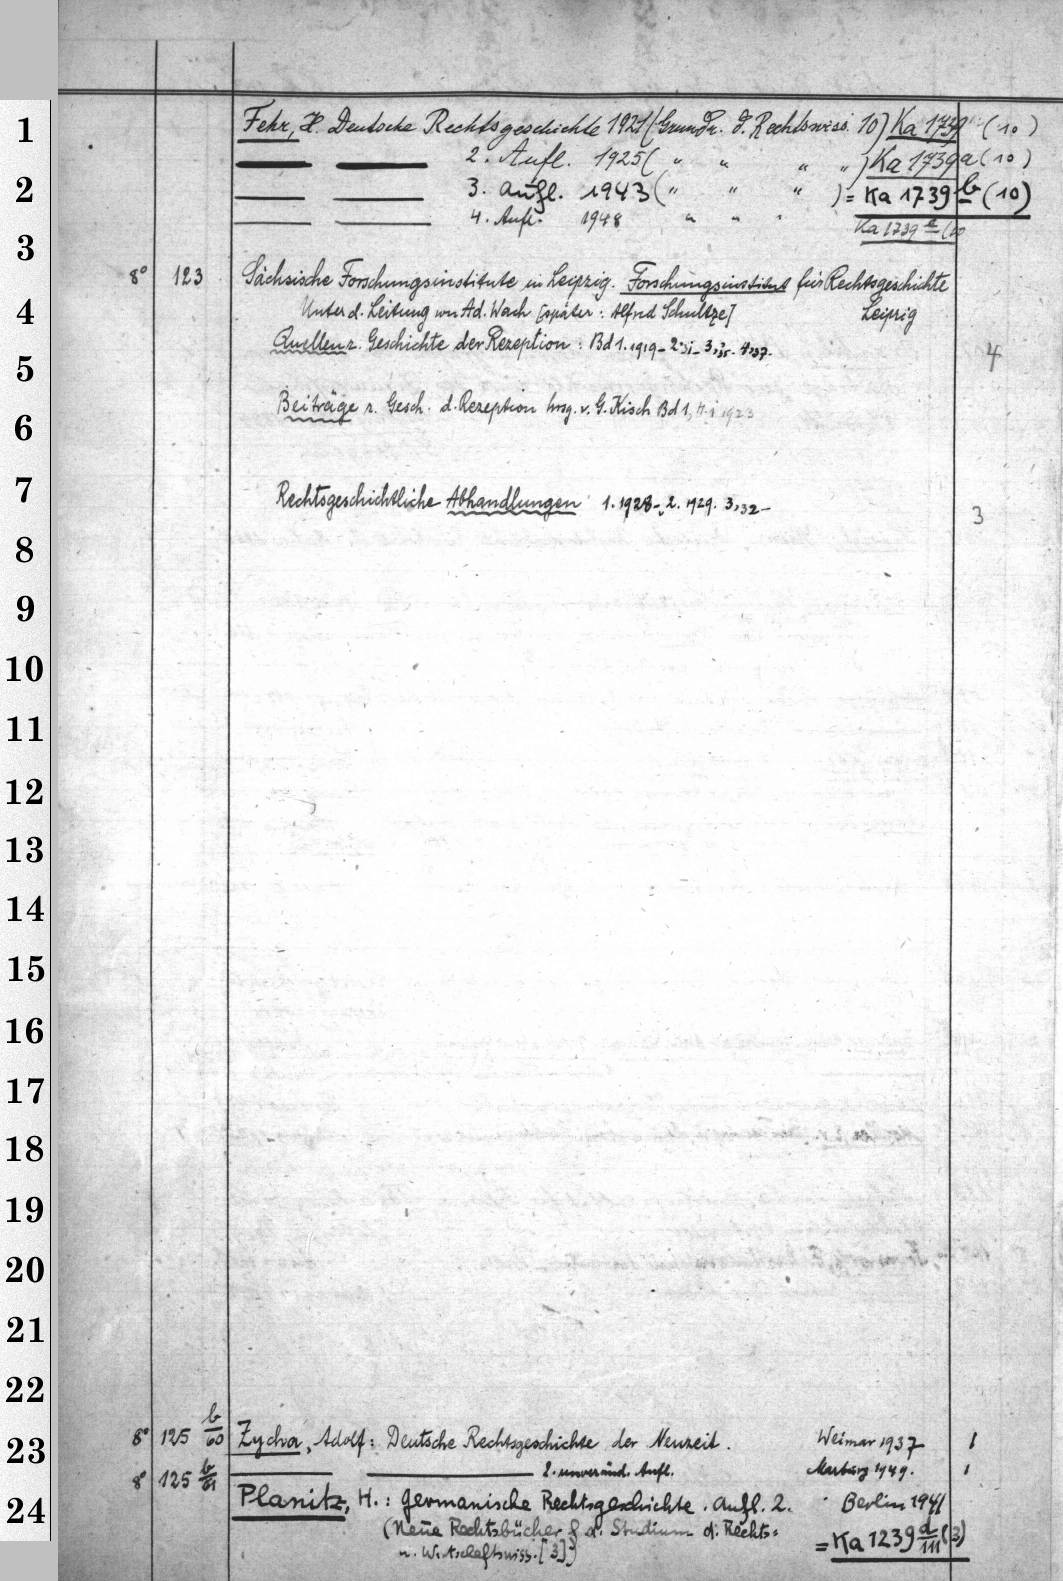 1 Fehr, H. Deutsche Rechtsgeschichte 1921 (Grundr. d. Rechtswiss. 10) Ka 1739 (10)
2. Aufl. 1925 ( " " " " ) Ka 1739 a (10)
2 3. Aufl. 1943 ( " " " ) = Ka 1739 b (10)
4. Aufl. 1948 " " " Ka 1739 c (10
3
8° 123 Sächsische Forschungsinstitute in Leipzig. Forschungsinstitut für Rechtsgeschichte
4 Unter d. Leitung von Ad. Wach [später: Alfred Schultze] Leipzig
Quellen z. Geschichte der Rezeption: Bd 1. 1919 - 2. 31 - 3, 4, 37. 4
5
6 Beiträge z. Gesch. d. Rezeption hrsg. v. G. Kisch Bd 1, H. 1 1923
7 Rechtsgeschichtliche Abhandlungen 1. 1928 -, 2. 1929. 3, 32 - 3
8
9
10
11
12
13
14
15
16
17
18
19
20
21
22
23 8° 125 b/60 Zycha, Adolf: Deutsche Rechtsgeschichte der Neuzeit. Weimar 1937 1
8° 125 b/61 2. unveränd. Aufl. Marburg 1949. 1
24 Planitz, H.: Germanische Rechtsgeschichte. Aufl. 2. Berlin 1941
(Neue Rechtsbücher f. d. Studium d. Rechts= = Ka 1239 d/III (3)
u. Wirtschaftswiss. [3])